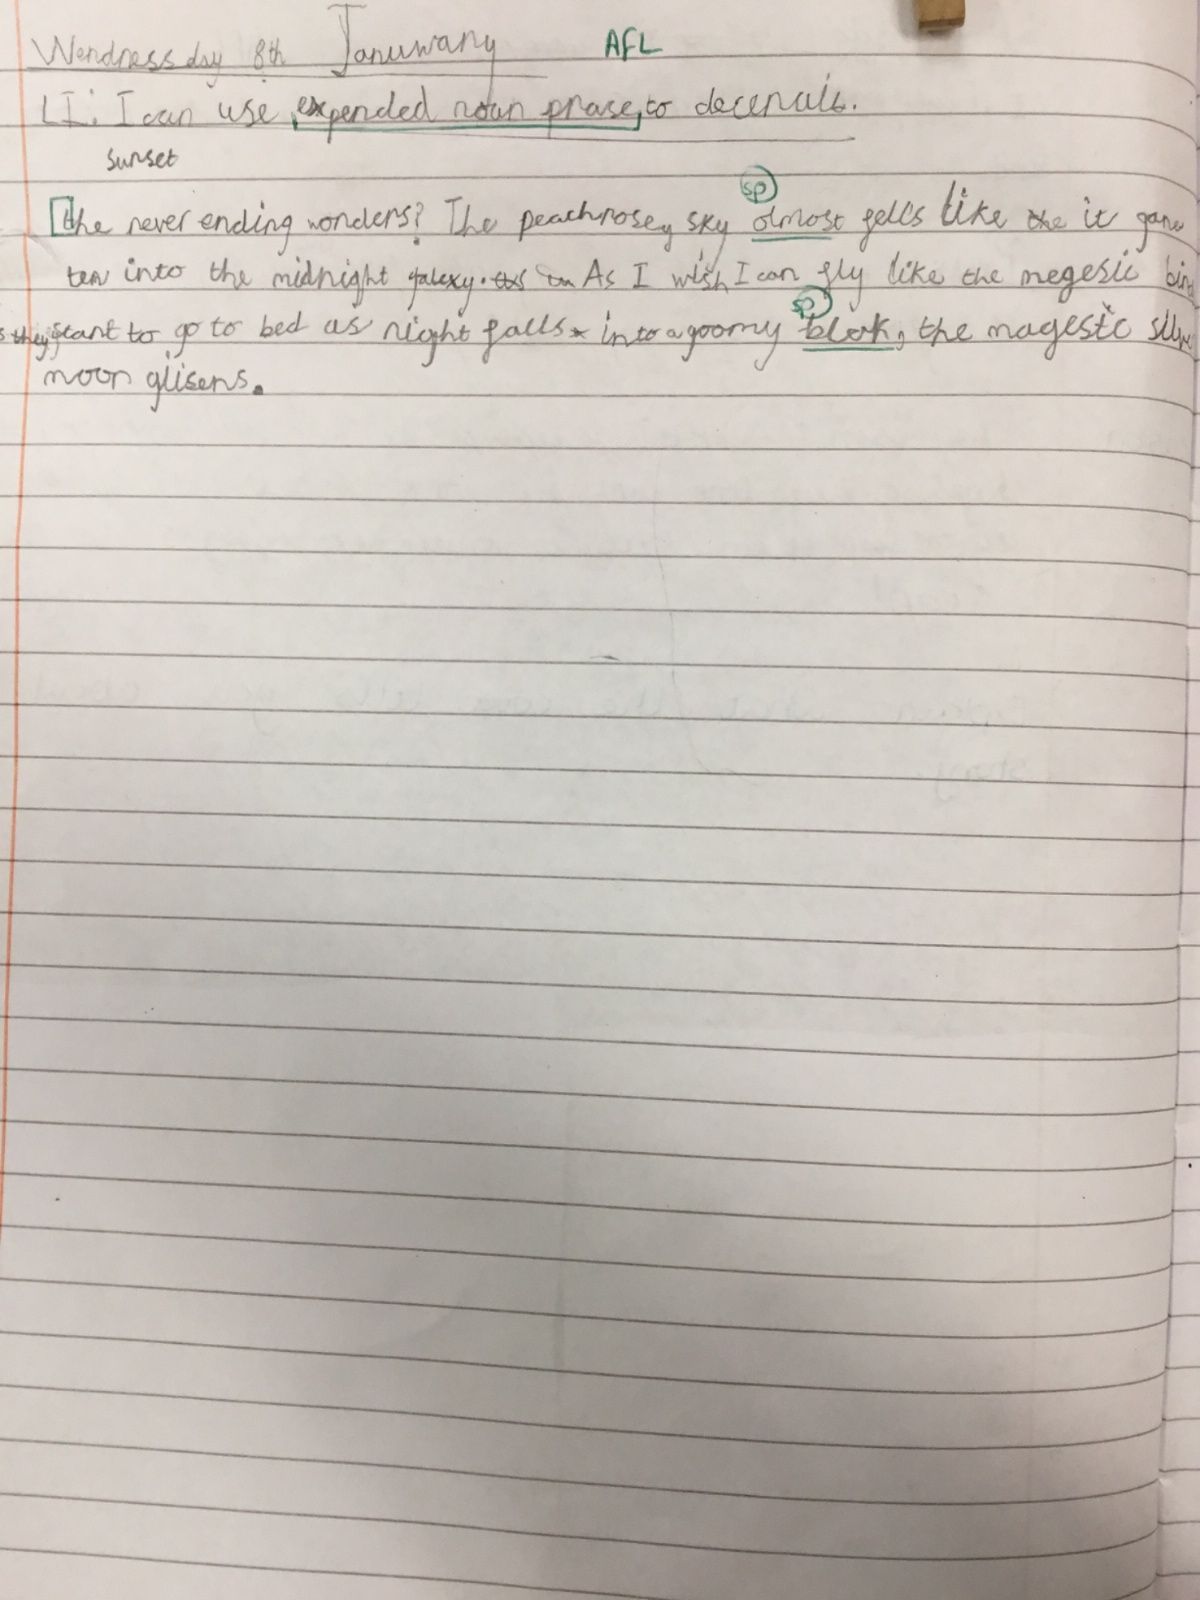 Wendressday 8th Januwary AFL
LI: I can use expended noun prase, to decenals.
sunset
sp
the never ending wonders? The peachrosey sky olmost fells like the it gane
ten into the midnight galexy. As I wish I can fly like the megesic bird
sp
s they stant to go to bed as night falls into a goomy blok, the magestic silve
moon glisens.